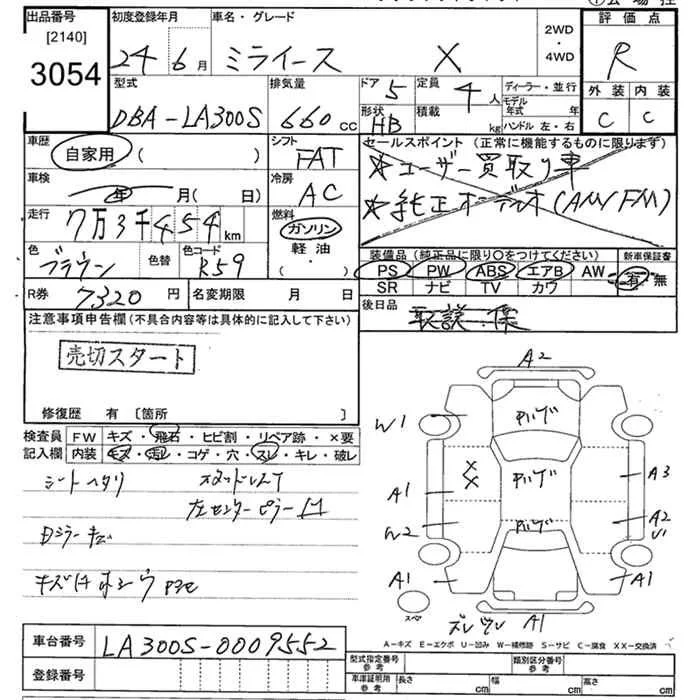 出品番号
[2140]
3054
初度登録年月
24年6月
車名・グレード
ミライース X
2WD
・
4WD
評価点
R
外装 内装
C C
型式
DBA-LA300S
排気量
660cc
ドア
5
定員
4人
形状
HB
積載
kg
ディーラー・並行
モデル
年式 年
ハンドル 左・右
車歴
自家用 ( )
シフト
FAT
セールスポイント (正常に機能するものに限ります)
★ユーザー買取り車
★純正オーデオ(AM/FM)
車検
年 月( 日)
冷房
AC
走行
7万3千454km
燃料
ガソリン
軽油・
( )
色
ブラウン
色替
色コード
R59
装備品 (純正品に限り○をつけてください)
PS PW ABS エアB AW
SR ナビ TV カワ
新車保証書
有・無
R券
7320円
名変期限 月 日
後日品
取説一保
注意事項申告欄(不具合内容等は具体的に記入して下さい)
売切スタート
修復歴 有 〔箇所 〕
検査員
記入欄
FW キズ・飛石・ヒビ割・リペア跡・×要
内装 キズ・汚レ・コゲ・穴・スレ・キレ・破レ
シートヘタリ
左センターピラー
A2
W1
A1
W2
A1
A3
A2
U1
A1
A1
スペア
A-キズ E-エクボ U-凹み W-補修跡 S-サビ C-腐食 XX-交換済
車台番号
LA300S-0009552
登録番号
型式指定番号
参考
類別区分番号
参考
車庫証明用
参考
長さ cm 幅 cm 高さ cm